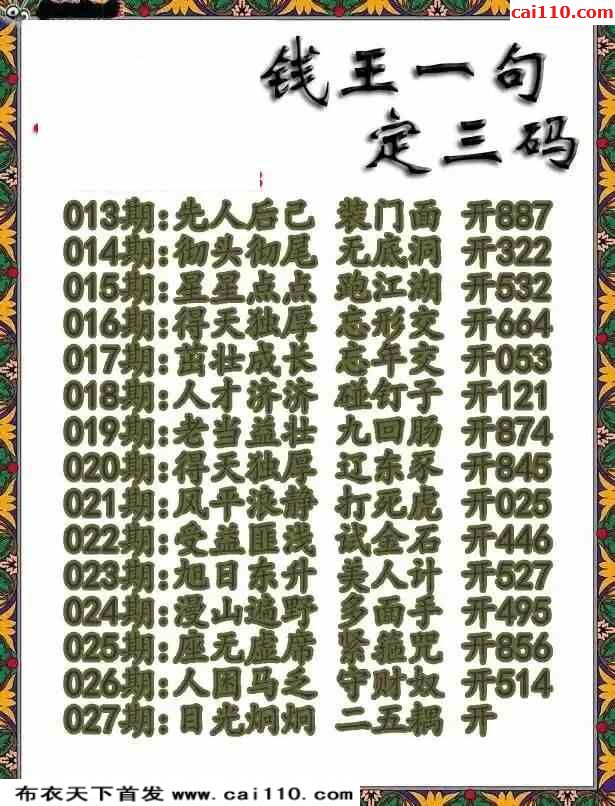 cai110.com
钱王一句
定三码
013期:先人后己 装门面 开887
014期:彻头彻尾 无底洞 开322
015期:星星点点 跑江湖 开532
016期:得天独厚 忘形交 开664
017期:茁壮成长 忘年交 开053
018期:人才济济 碰钉子 开121
019期:老当益壮 九回肠 开874
020期:得天独厚 辽东豕 开845
021期:风平浪静 打死虎 开025
022期:受益匪浅 试金石 开446
023期:旭日东升 美人计 开527
024期:漫山遍野 多面手 开495
025期:座无虚席 紧箍咒 开856
026期:人困马乏 守财奴 开514
027期:目光炯炯 二五耦 开
布衣天下首发 www.cai110.com